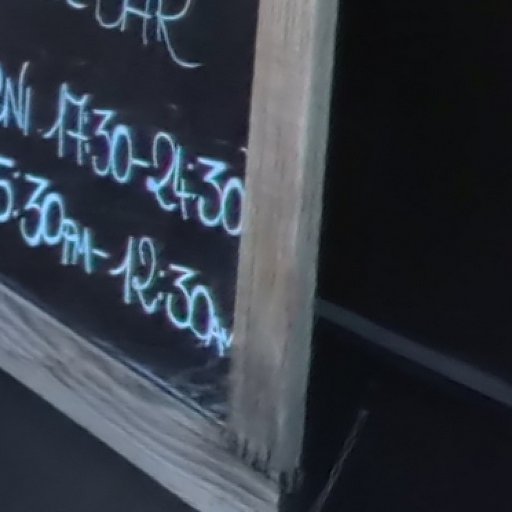 NI 17:30-24:30
5:30PM-12:30AM